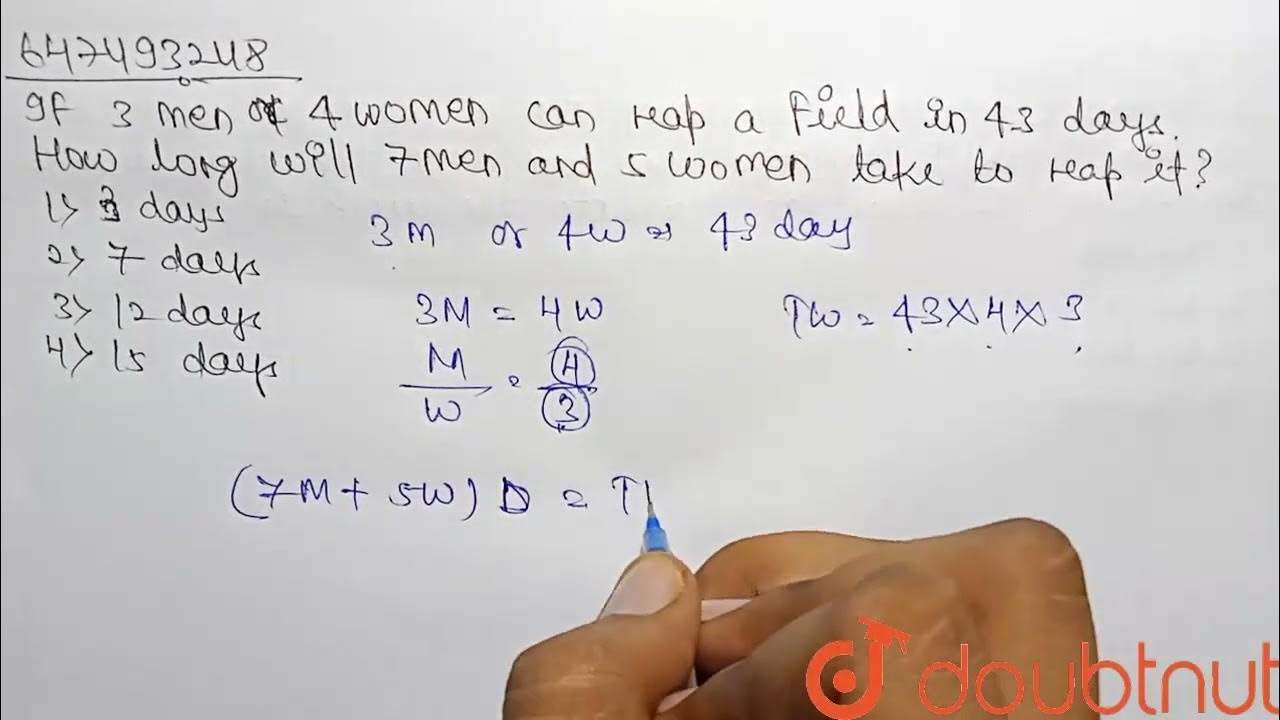 647493248
If 3 men or 4 women can reap a field in 43 days.
How long will 7 men and 5 women take to reap it?
1> 3 days
2> 7 days
3> 12 days
4> 15 days
3M or 4W = 43 day
3M = 4W
M/W = 4/3
TW = 43×4×3
(7M + 5W) D = T
doubtnut